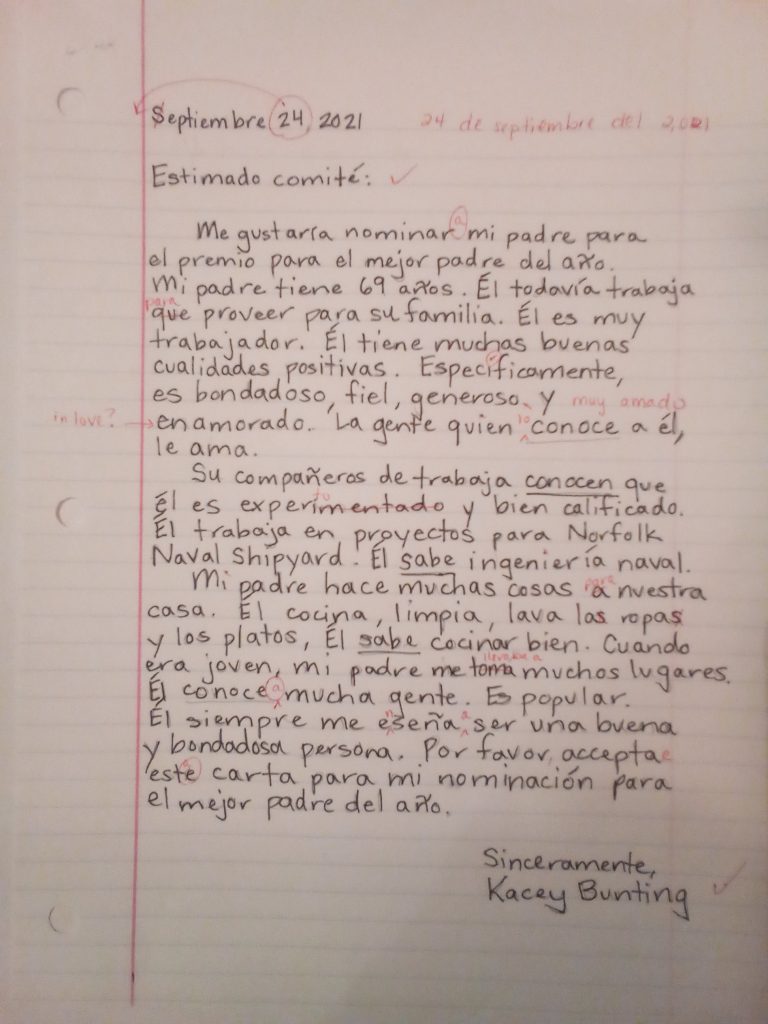 Septiembre 24, 2021 24 de septiembre del 2,021
Estimado comité: ✓
Me gustaría nominar a mi padre para
el premio para el mejor padre del año.
Mi padre tiene 69 años. Él todavía trabaja
para
que proveer para su familia. Él es muy
trabajador. Él tiene muchas buenas
cualidades positivas. Específicamente,
es bondadoso, fiel, generoso, y muy amado
in love? → enamorado. La gente quien lo conoce a él,
le ama.
Su compañeros de trabaja conocen que
él es experimentado y bien calificado.
Él trabaja en proyectos para Norfolk
Naval Shipyard. Él sabe ingeniería naval.
Mi padre hace muchas cosas para a nuestra
casa. Él cocina, limpia, lava las ropas
y los platos, Él sabe cocinar bien. Cuando
era joven, mi padre me toma muchos lugares.
llevaba a
Él conoce a mucha gente. Es popular.
Él siempre me eseña a ser una buena
n
y bondadosa persona. Por favor, accepta e
este a carta para mi nominación para
el mejor padre del año.
Sinceramente,
Kacey Bunting ✓